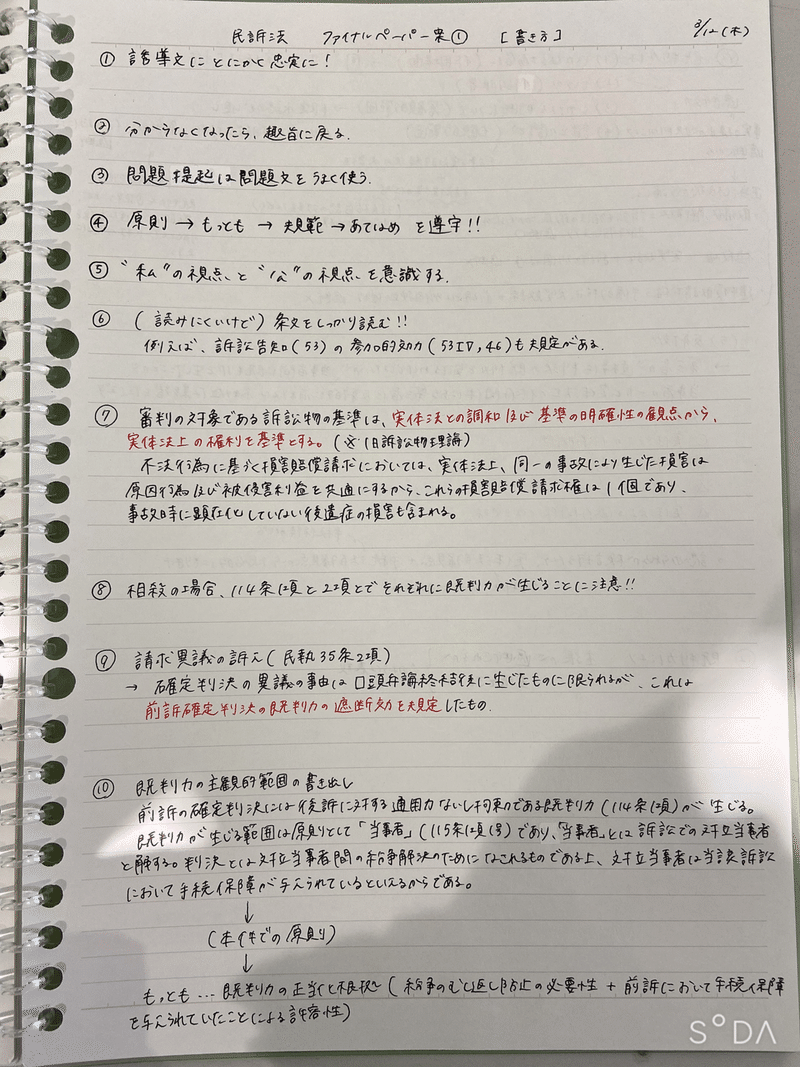 民訴法 ファイナルペーパー案① [書き方] 3/12(木)
① 誘導文にとにかく忠実に!
② 分からなくなったら、趣旨に戻る.
③ 問題提起は問題文をうまく使う.
④ 原則→もっとも→規範→あてはめ を遵守!!
⑤ “私”の視点、と“公”の視点、を意識する.
⑥ (読みにくいけど)条文をしっかり読む!!
例えば、訴訟告知(53)の参加的効力(53Ⅳ,46)も規定がある.
⑦ 審判の対象である訴訟物の基準は、実体法との調和及び基準の明確性の観点から、
実体法上の権利を基準とする。(※旧訴訟物理論)
不法行為に基づく損害賠償請求においては、実体法上、同一の事故により生じた損害は
原因行為及び被侵害利益を共通にするから、これらの損害賠償請求権は1個であり、
事故時に顕在化していない後遺症の損害も含まれる。
⑧ 相殺の場合、114条1項と2項とでそれぞれに既判力が生じることに注意!!
⑨ 請求異議の訴え(民執35条2項)
→ 確定判決の異議の事由は口頭弁論終結後に生じたものに限られるが、これは
前訴確定判決の既判力の遮断効を規定したもの.
⑩ 既判力の主観的範囲の書き出し
前訴の確定判決には後訴に対する通用力ないし拘束力である既判力(114条1項)が生じる。
既判力が生じる範囲は原則として「当事者」(115条1項1号)であり、「当事者」とは訴訟での対立当事者
と解する。判決とは対立当事者間の紛争解決のためになされるものである上、対立当事者は当該訴訟
において手続保障が与えられているといえるからである。
↓
(本件での原則)
↓
もっとも…既判力の正当化根拠(紛争のむし返し防止の必要性+前訴において手続保障
を与えられていたことによる許容性)
SODA